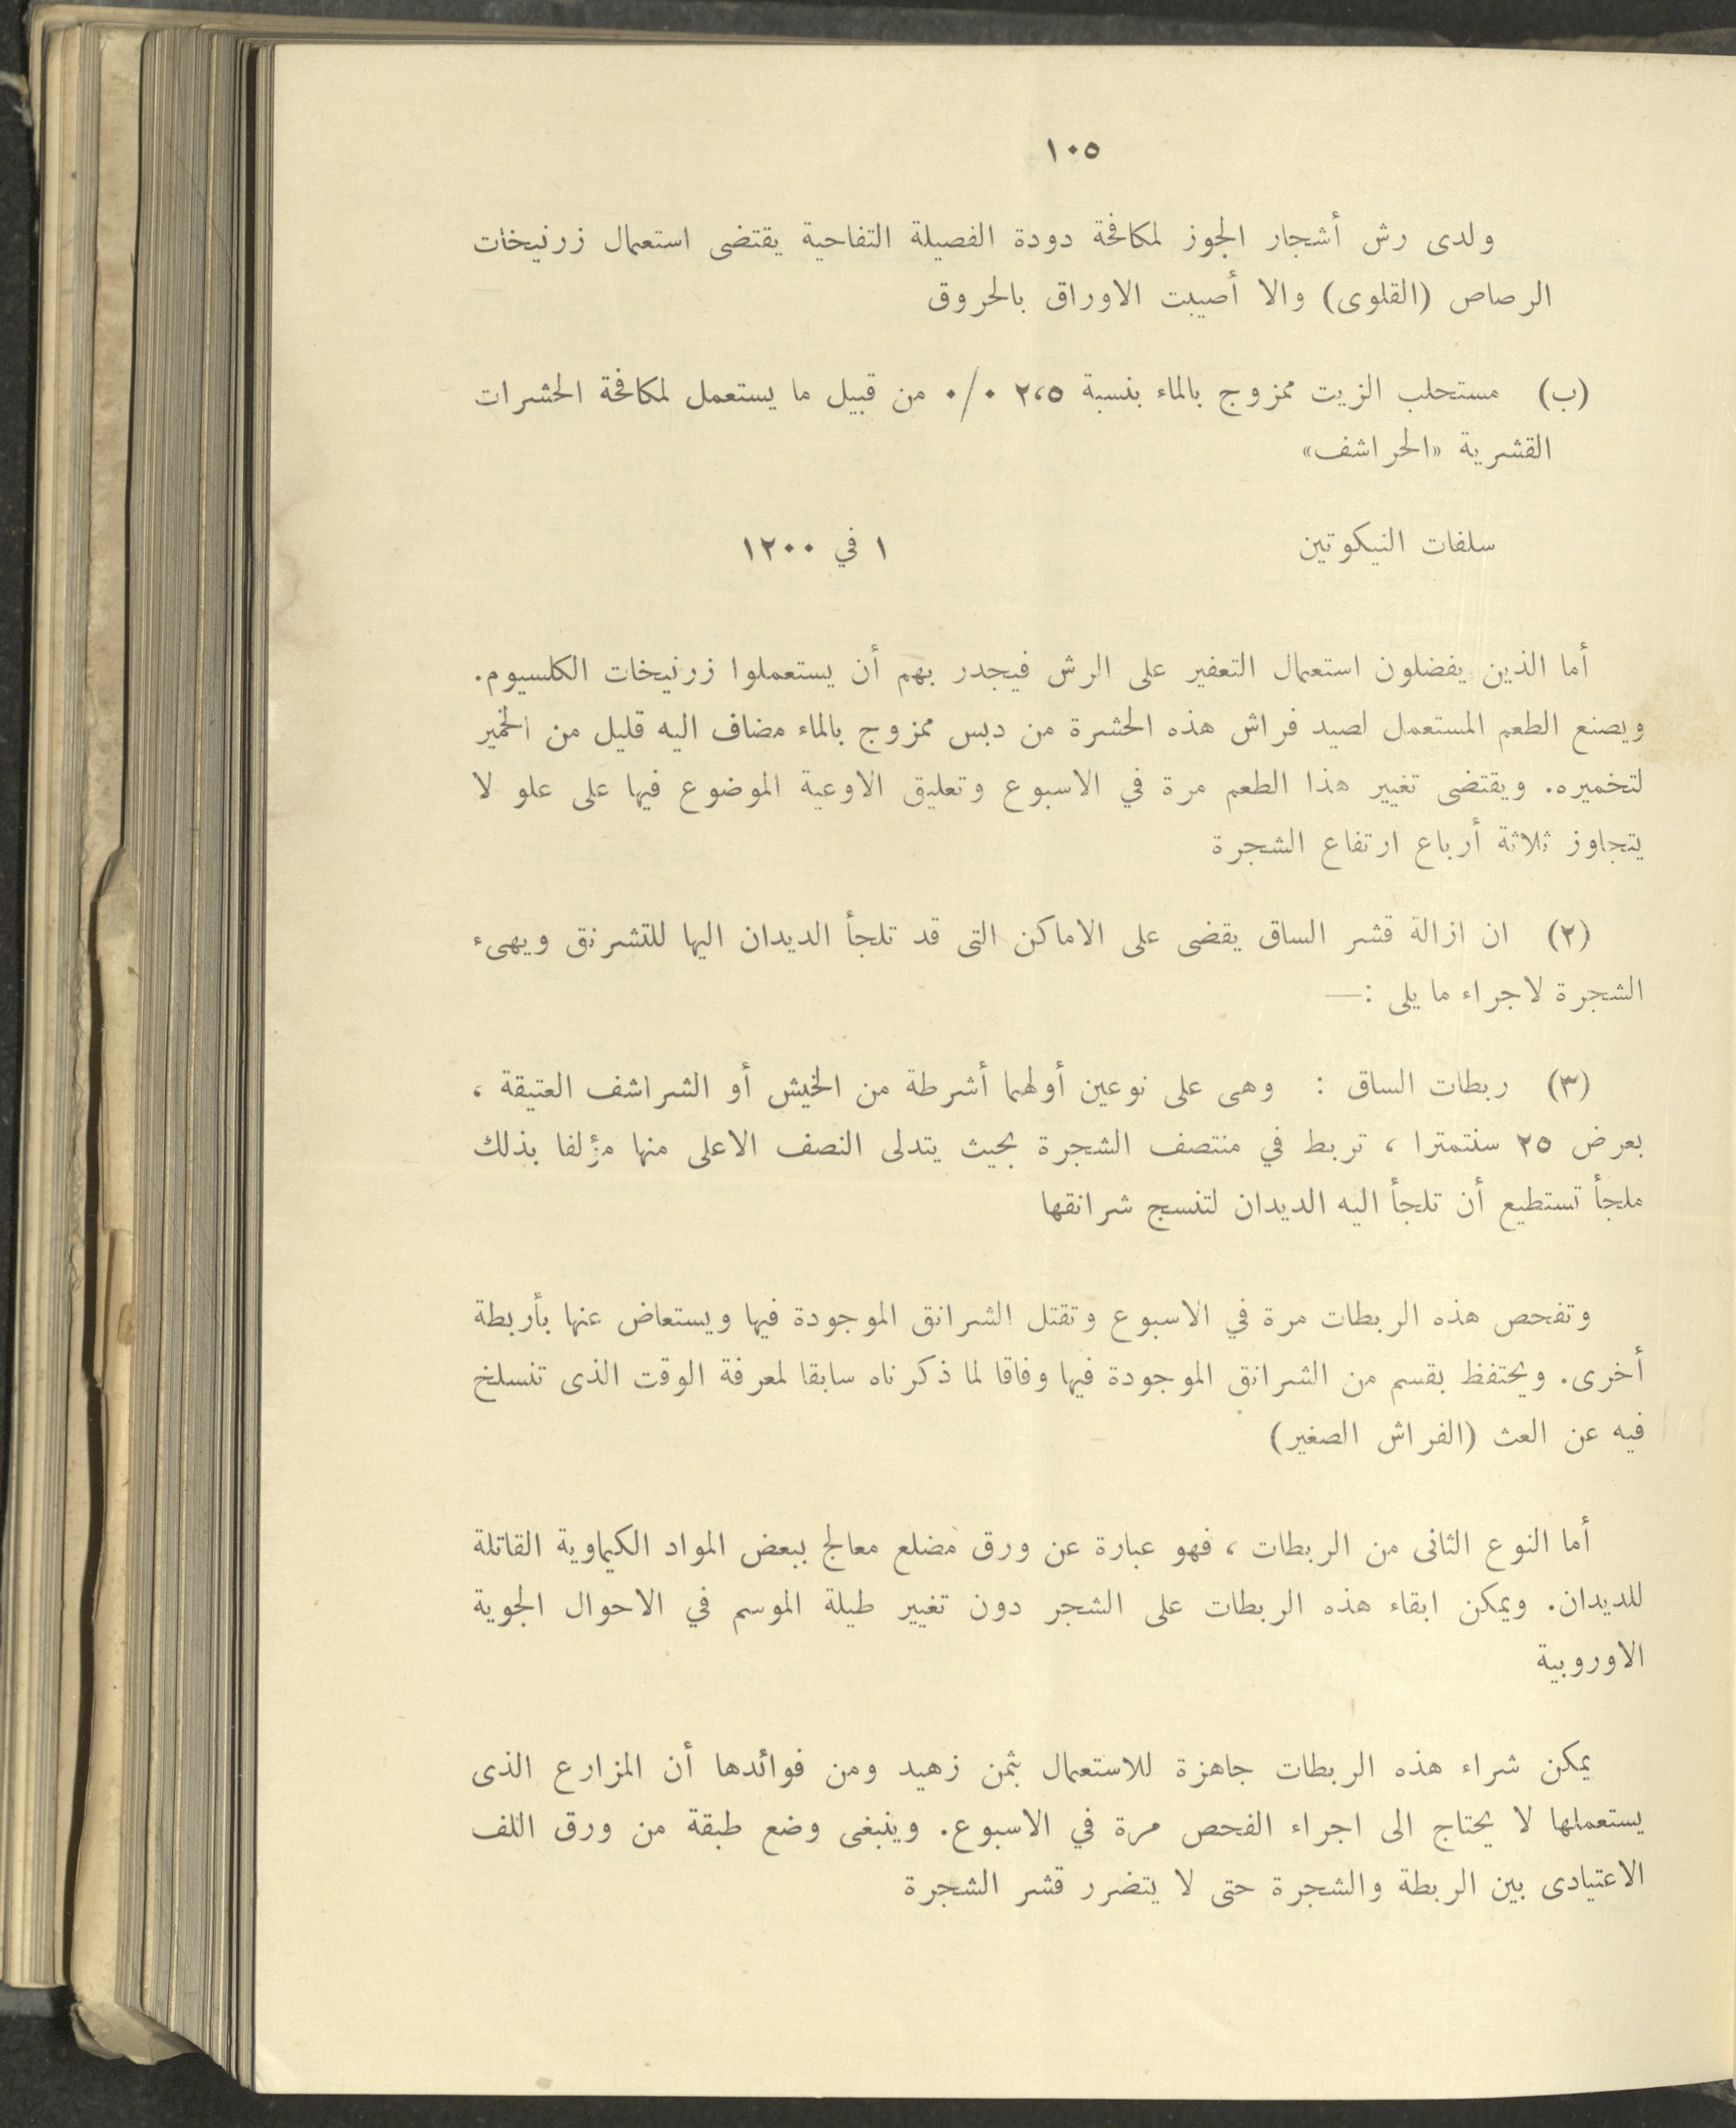 ١٠٥
ولدى رش أشجار الجوز لمكافحة دودة الفصيلة التفاحية يقتضى استعمال زرنيخات
الرصاص (القلوى) والا أصيبت الاوراق بالحروق
(ب) مستحلب الزيت ممزوج بالماء بنسبة ٢،٥ ٠/٠ من قبيل ما يستعمل لمكافحة الحشرات
القشرية «الحراشف»
سلفات النيكوتين ١ في ١٢٠٠
أما الذين يفضلون استعمال التعفير على الرش فيجدر بهم أن يستعملوا زرنيخات الكلسيوم.
ويصنع الطعم المستعمل لصيد فراش هذه الحشرة من دبس ممزوج بالماء مضاف اليه قليل من الخمير
لتخميره. ويقتضى تغيير هذا الطعم مرة في الاسبوع وتعليق الاوعية الموضوع فيها على علو لا
يتجاوز ثلاثة أرباع ارتفاع الشجرة
(٢) ان ازالة قشر الساق يقضى على الاماكن التى قد تلجأ الديدان اليها للتشرنق ويهىء
الشجرة لاجراء ما يلى :—
(٣) ربطات الساق : وهى على نوعين أولهما أشرطة من الخيش أو الشراشف العتيقة ،
بعرض ٢٥ سنتمترا ، تربط في منتصف الشجرة بحيث يتدلى النصف الاعلى منها مؤلفا بذلك
ملجأ تستطيع أن تلجأ اليه الديدان لتنسج شرانقها
وتفحص هذه الربطات مرة في الاسبوع وتقتل الشرانق الموجودة فيها ويستعاض عنها بأربطة
أخرى. ويحتفظ بقسم من الشرانق الموجودة فيها وفاقا لما ذكرناه سابقا لمعرفة الوقت الذى تنسلخ
فيه عن العث (الفراش الصغير)
أما النوع الثانى من الربطات ، فهو عبارة عن ورق مضلع معالج ببعض المواد الكيماوية القاتلة
للديدان. ويمكن ابقاء هذه الربطات على الشجر دون تغيير طيلة الموسم في الاحوال الجوية
الاوروبية
يمكن شراء هذه الربطات جاهزة للاستعمال بثمن زهيد ومن فوائدها أن المزارع الذى
يستعملها لا يحتاج الى اجراء الفحص مرة في الاسبوع. وينبغى وضع طبقة من ورق اللف
الاعتيادى بين الربطة والشجرة حتى لا يتضرر قشر الشجرة